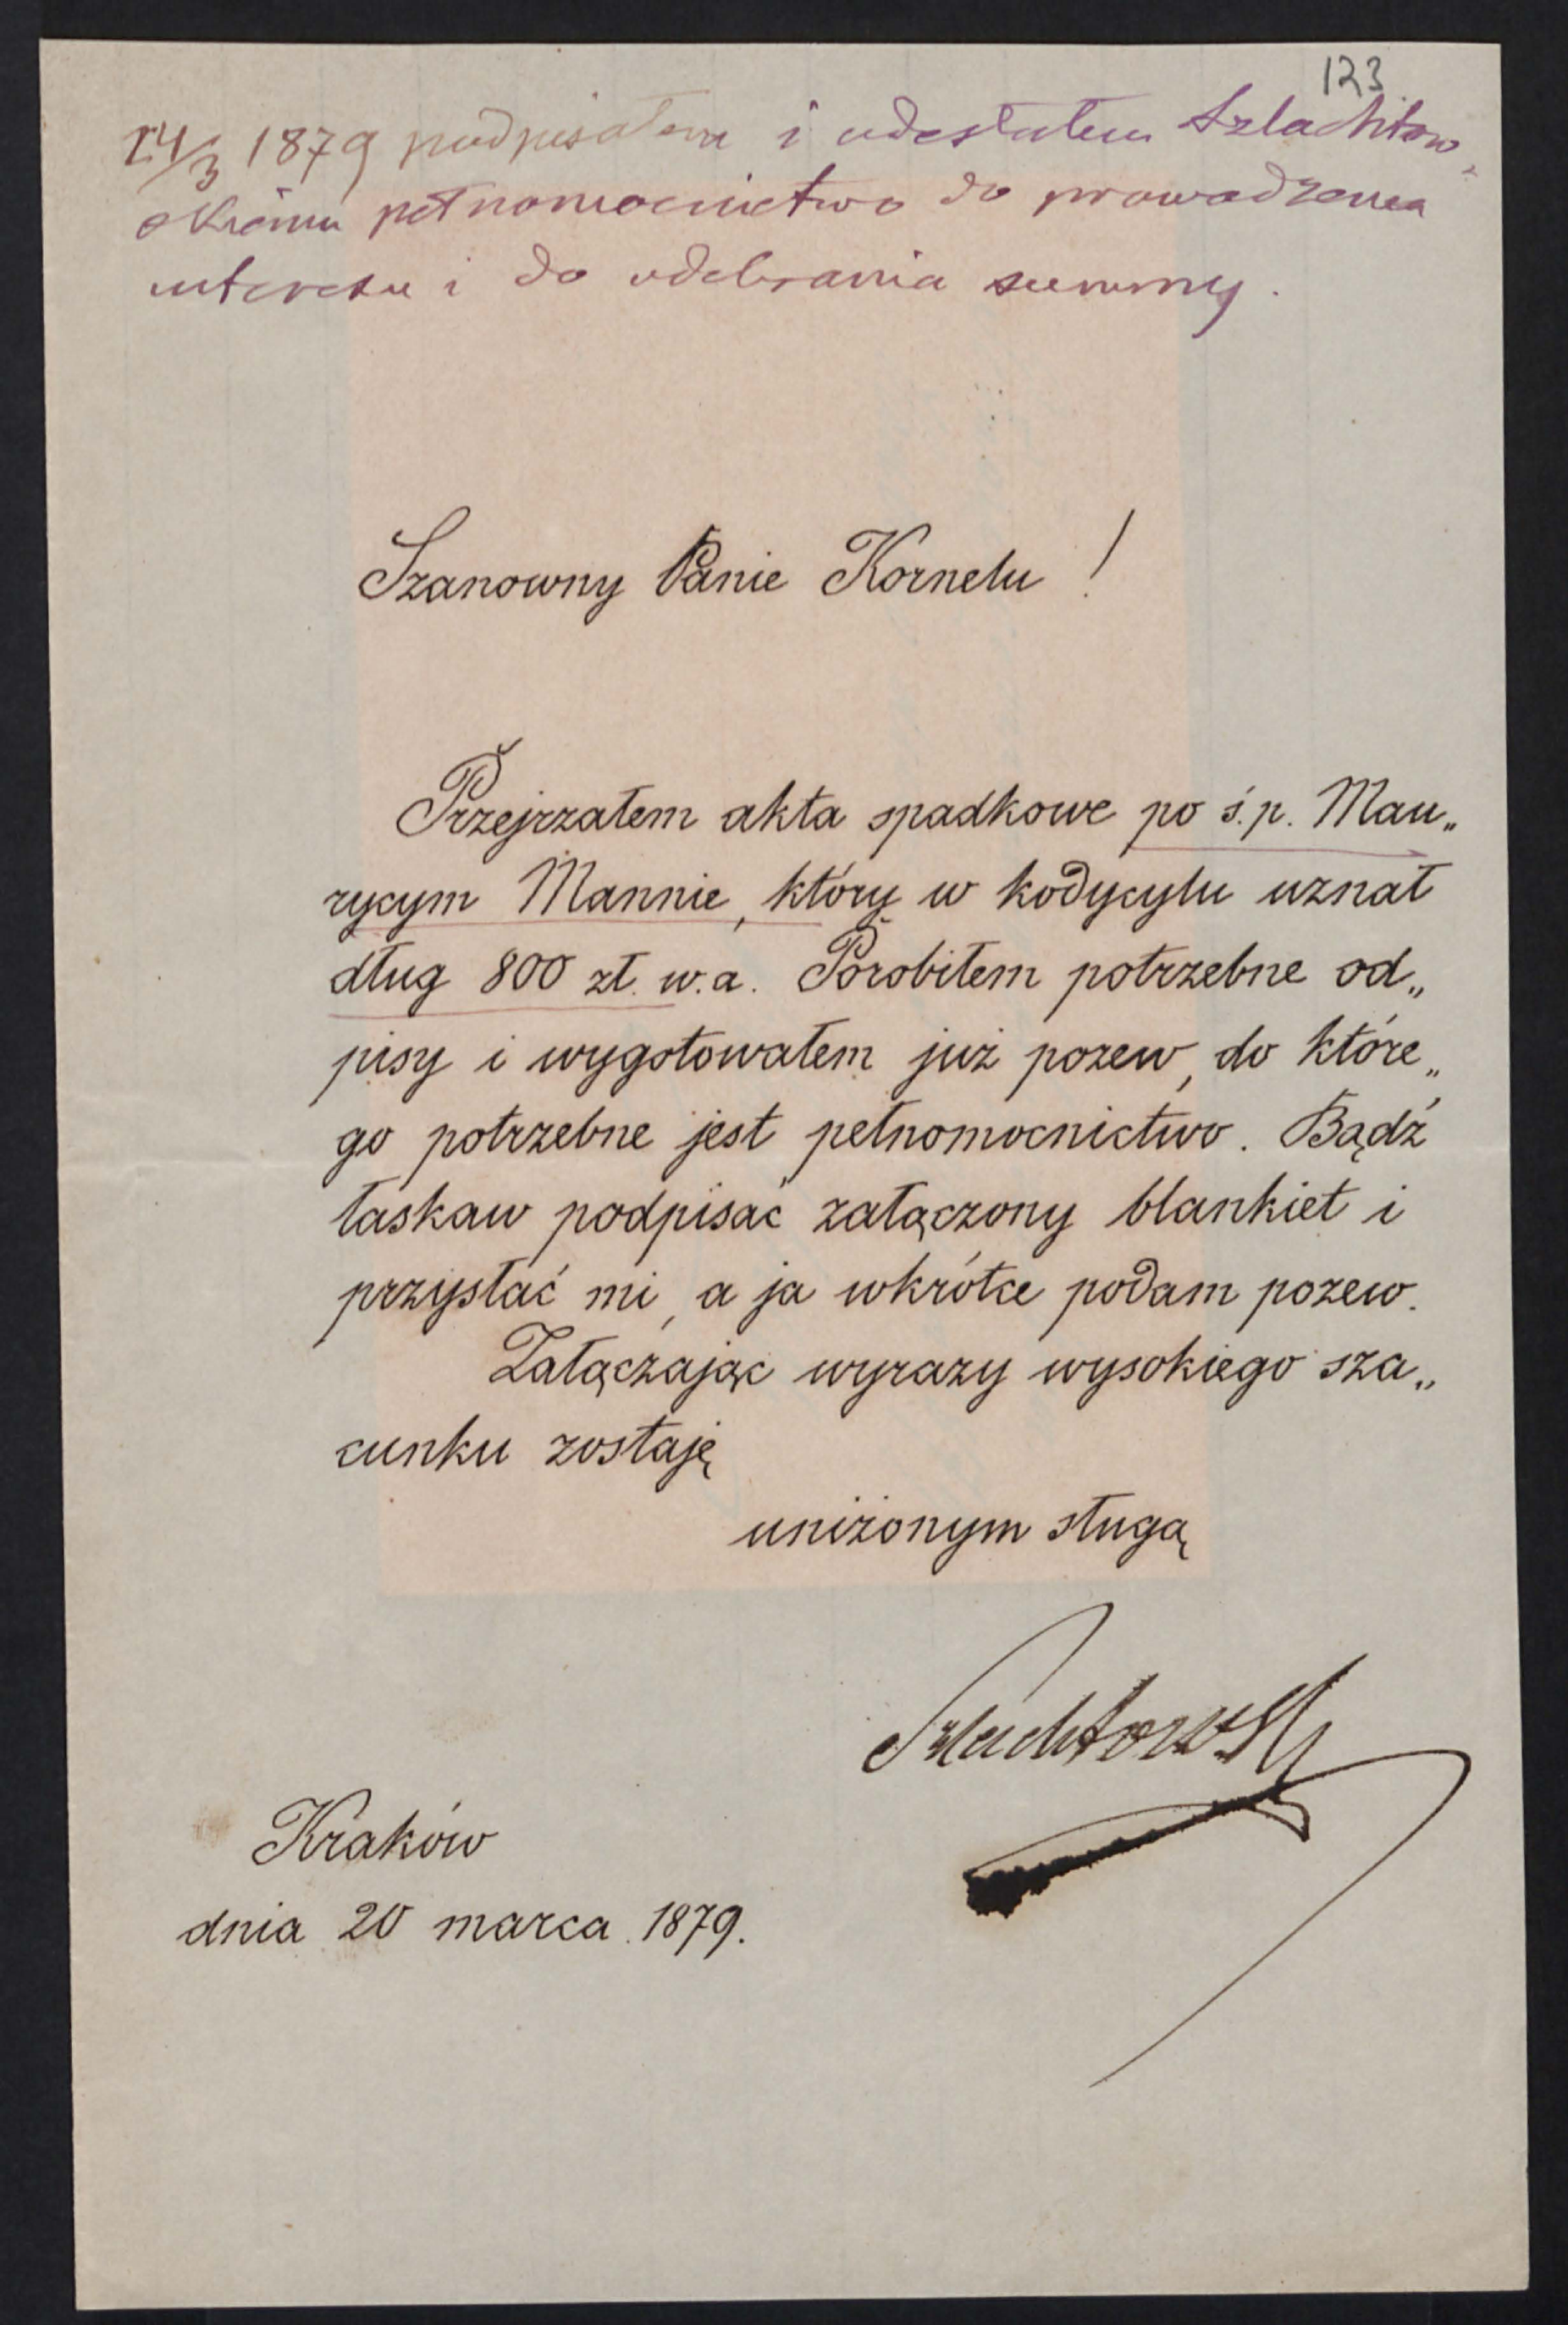 123
24/3 1879 podpisałem i odesłałem Szlachtow„
skiemu pełnomocnictwo do prowadzenia
interesu i do odebrania summy.
Szanowny Panie Kornelu !
Przejrzałem akta spadkowe po ś.p. Mau„
rycym Mannie, który w kodycylu uznał
dług 800 zł. w.a. Porobiłem potrzebne od„
pisy i wygotowałem już pozew, do które„
go potrzebne jest pełnomocnictwo. Bądź
łaskaw podpisać załączony blankiet i
przysłać mi, a ja wkrótce podam pozew.
Załączając wyrazy wysokiego sza„
cunku zostaję
uniżonym sługą
Szlachtowski
Kraków
dnia 20 marca 1879.